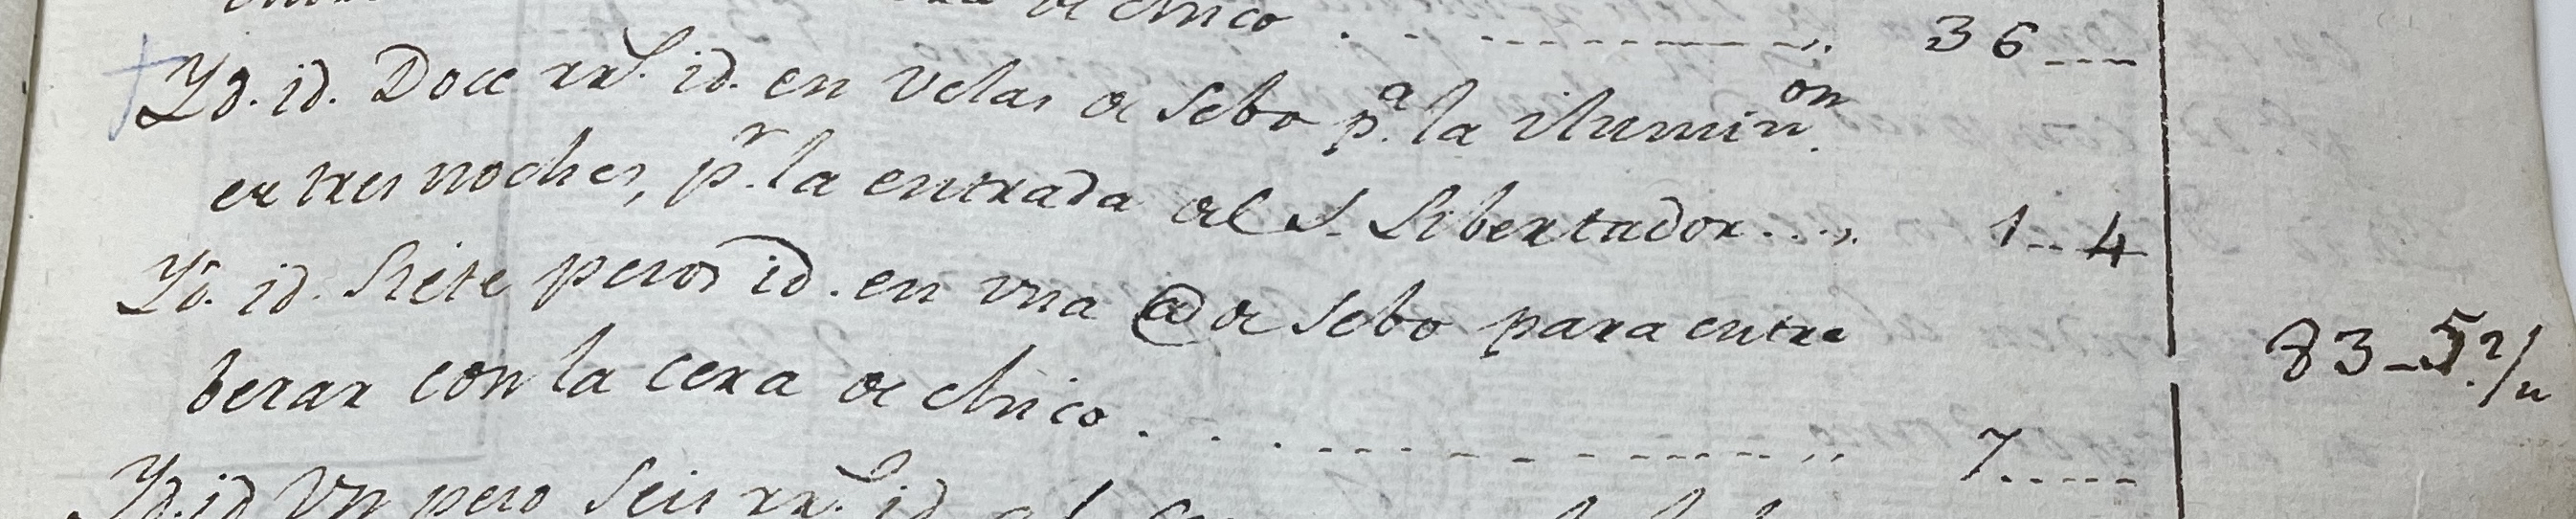 de chico . . . . . . . . . . . . . . ,, 36 - - -
Yd. id. Doce rr.s id. en velas de sebo p.a la ilumin.on
en tres noches, p.r la entrada del S. Libertador . . . ,, 1 - - 4
Yd. id. Siete pesos id. en vna @ de sebo para entre
berar con la cera de chico . . . . . . . . . . . . . . ,, 7 - - - - -
83 - 5. 2/u
Yd. id Vn peso Seis rr.s id